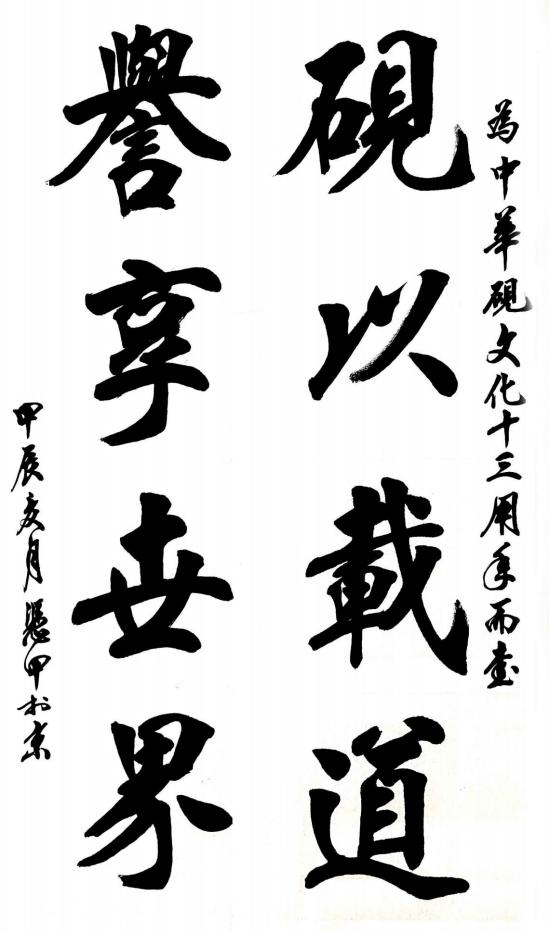 為中華硯文化十三周年而書
硯以載道
譽享世界
甲辰亥月憑甲於京